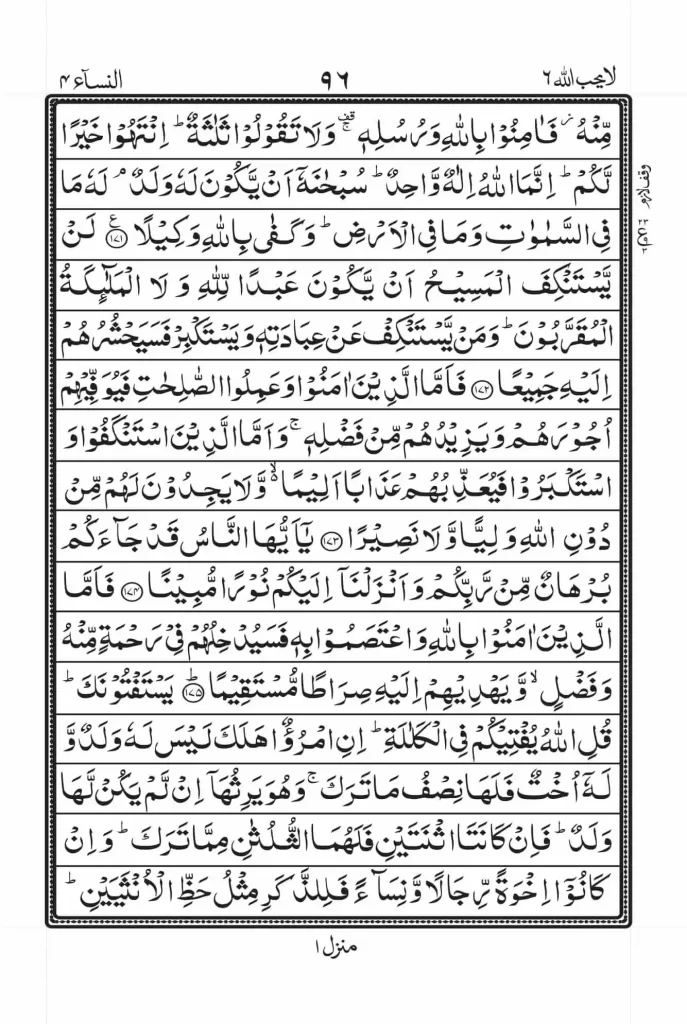 لا یحب اللہ ۶ ۹۶ النسآء ۴
مِّنۡهُ ۫ فَاٰمِنُوۡا بِاللّٰهِ وَرُسُلِهٖ ۟ۚ وَلَا تَقُوۡلُوۡا ثَلٰثَةٌ ؕ اِنۡتَهُوۡا خَيۡرًا
لَّكُمۡ ؕ اِنَّمَا اللّٰهُ اِلٰهٌ وَّاحِدٌ ؕ سُبۡحٰنَهٗۤ اَنۡ يَّكُوۡنَ لَهٗ وَلَدٌ ۘ لَهٗ مَا
وقف لازم
فِى السَّمٰوٰتِ وَمَا فِى الۡاَرۡضِ ؕ وَكَفٰى بِاللّٰهِ وَكِيۡلًا ﴿۱۷۱﴾ ع لَنۡ
يَّسۡتَنۡكِفَ الۡمَسِيۡحُ اَنۡ يَّكُوۡنَ عَبۡدًا لِّلّٰهِ وَ لَا الۡمَلٰٓئِكَةُ
الۡمُقَرَّبُوۡنَ ؕ وَمَنۡ يَّسۡتَنۡكِفۡ عَنۡ عِبَادَتِهٖ وَيَسۡتَكۡبِرۡ فَسَيَحۡشُرُهُمۡ
اِلَيۡهِ جَمِيۡعًا ﴿۱۷۲﴾ فَاَمَّا الَّذِيۡنَ اٰمَنُوۡا وَعَمِلُوا الصّٰلِحٰتِ فَيُوَفِّيۡهِمۡ
اُجُوۡرَهُمۡ وَيَزِيۡدُهُمۡ مِّنۡ فَضۡلِهٖ ۚ وَاَمَّا الَّذِيۡنَ اسۡتَنۡكَفُوۡا وَ
اسۡتَكۡبَرُوۡا فَيُعَذِّبُهُمۡ عَذَابًا اَلِيۡمًا ۙ وَّلَا يَجِدُوۡنَ لَهُمۡ مِّنۡ
دُوۡنِ اللّٰهِ وَلِيًّا وَّلَا نَصِيۡرًا ﴿۱۷۳﴾ يٰۤاَيُّهَا النَّاسُ قَدۡ جَآءَكُمۡ
بُرۡهَانٌ مِّنۡ رَّبِّكُمۡ وَاَنۡزَلۡنَاۤ اِلَيۡكُمۡ نُوۡرًا مُّبِيۡنًا ﴿۱۷۴﴾ فَاَمَّا
الَّذِيۡنَ اٰمَنُوۡا بِاللّٰهِ وَاعۡتَصَمُوۡا بِهٖ فَسَيُدۡخِلُهُمۡ فِىۡ رَحۡمَةٍ مِّنۡهُ
وَفَضۡلٍ ۙ وَّيَهۡدِيۡهِمۡ اِلَيۡهِ صِرَاطًا مُّسۡتَقِيۡمًا ؕ﴿۱۷۵﴾ يَسۡتَفۡتُوۡنَكَ ؕ
قُلِ اللّٰهُ يُفۡتِيۡكُمۡ فِى الۡكَلٰلَةِ ؕ اِنِ امۡرُؤٌا هَلَكَ لَيۡسَ لَهٗ وَلَدٌ وَّ
لَهٗۤ اُخۡتٌ فَلَهَا نِصۡفُ مَا تَرَكَ ۚ وَهُوَ يَرِثُهَاۤ اِنۡ لَّمۡ يَكُنۡ لَّهَا
وَلَدٌ ؕ فَاِنۡ كَانَتَا اثۡنَتَيۡنِ فَلَهُمَا الثُّلُثٰنِ مِمَّا تَرَكَ ؕ وَاِنۡ
كَانُوۡۤا اِخۡوَةً رِّجَالًا وَّنِسَآءً فَلِلذَّكَرِ مِثۡلُ حَظِّ الۡاُنۡثَيَيۡنِ ؕ
منزل ۱